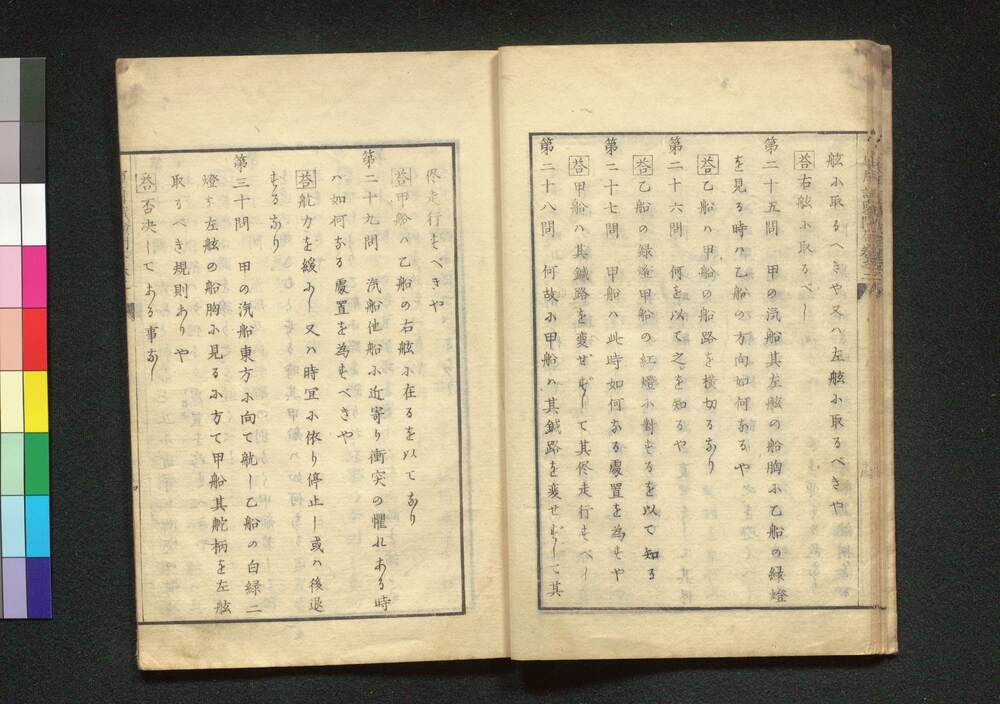 舷ニ取るへきや又ハ左舷ニ取るべきや
答 右舷ニ取るべし
第二十五問 甲の汽船其左舷の船胸ニ乙船の緑燈
を見る時ハ乙船の方向如何なるや
答 乙船ハ甲船の船路を横切るなり
第二十六問 何を以て之を知るや
答 乙船の緑燈甲船の紅燈ニ對するを以て知る
第二十七問 甲船ハ此時如何なる處置を為すや
答 甲船ハ其鍼路を変せずして其侭走行すべし
第二十八問 何故ニ甲船ハ其鍼路を変せずして其
侭走行すべきや
答 甲船ハ乙船の右舷ニ在るを以てなり
第二十九問 汽船他船ニ近寄り衝突の懼れある時
ハ如何なる處置を為すべきや
答 能力を緩めし又ハ時冝ニ依り停止し或ハ後退
するなり
第三十問 甲の汽船東方ニ向て航し乙船の白緑二
燈を左舷の船胸ニ見る方て甲船其舵柄を左舷
取るべき規則ありや
答 否決してある事なし